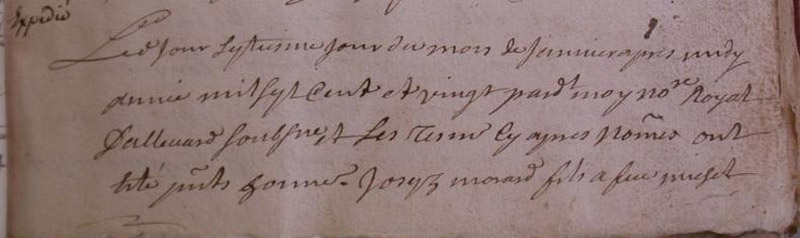 Expedié
Led Jour septiesme jour du mois de janvier apres midy
année mil sept Cent et vingt pard.t moy no.re Royal
d'allevard soubsne, et les tesm. Cy apres nom̃es ont
été pñts honne. Joseph morard fils a feu miset